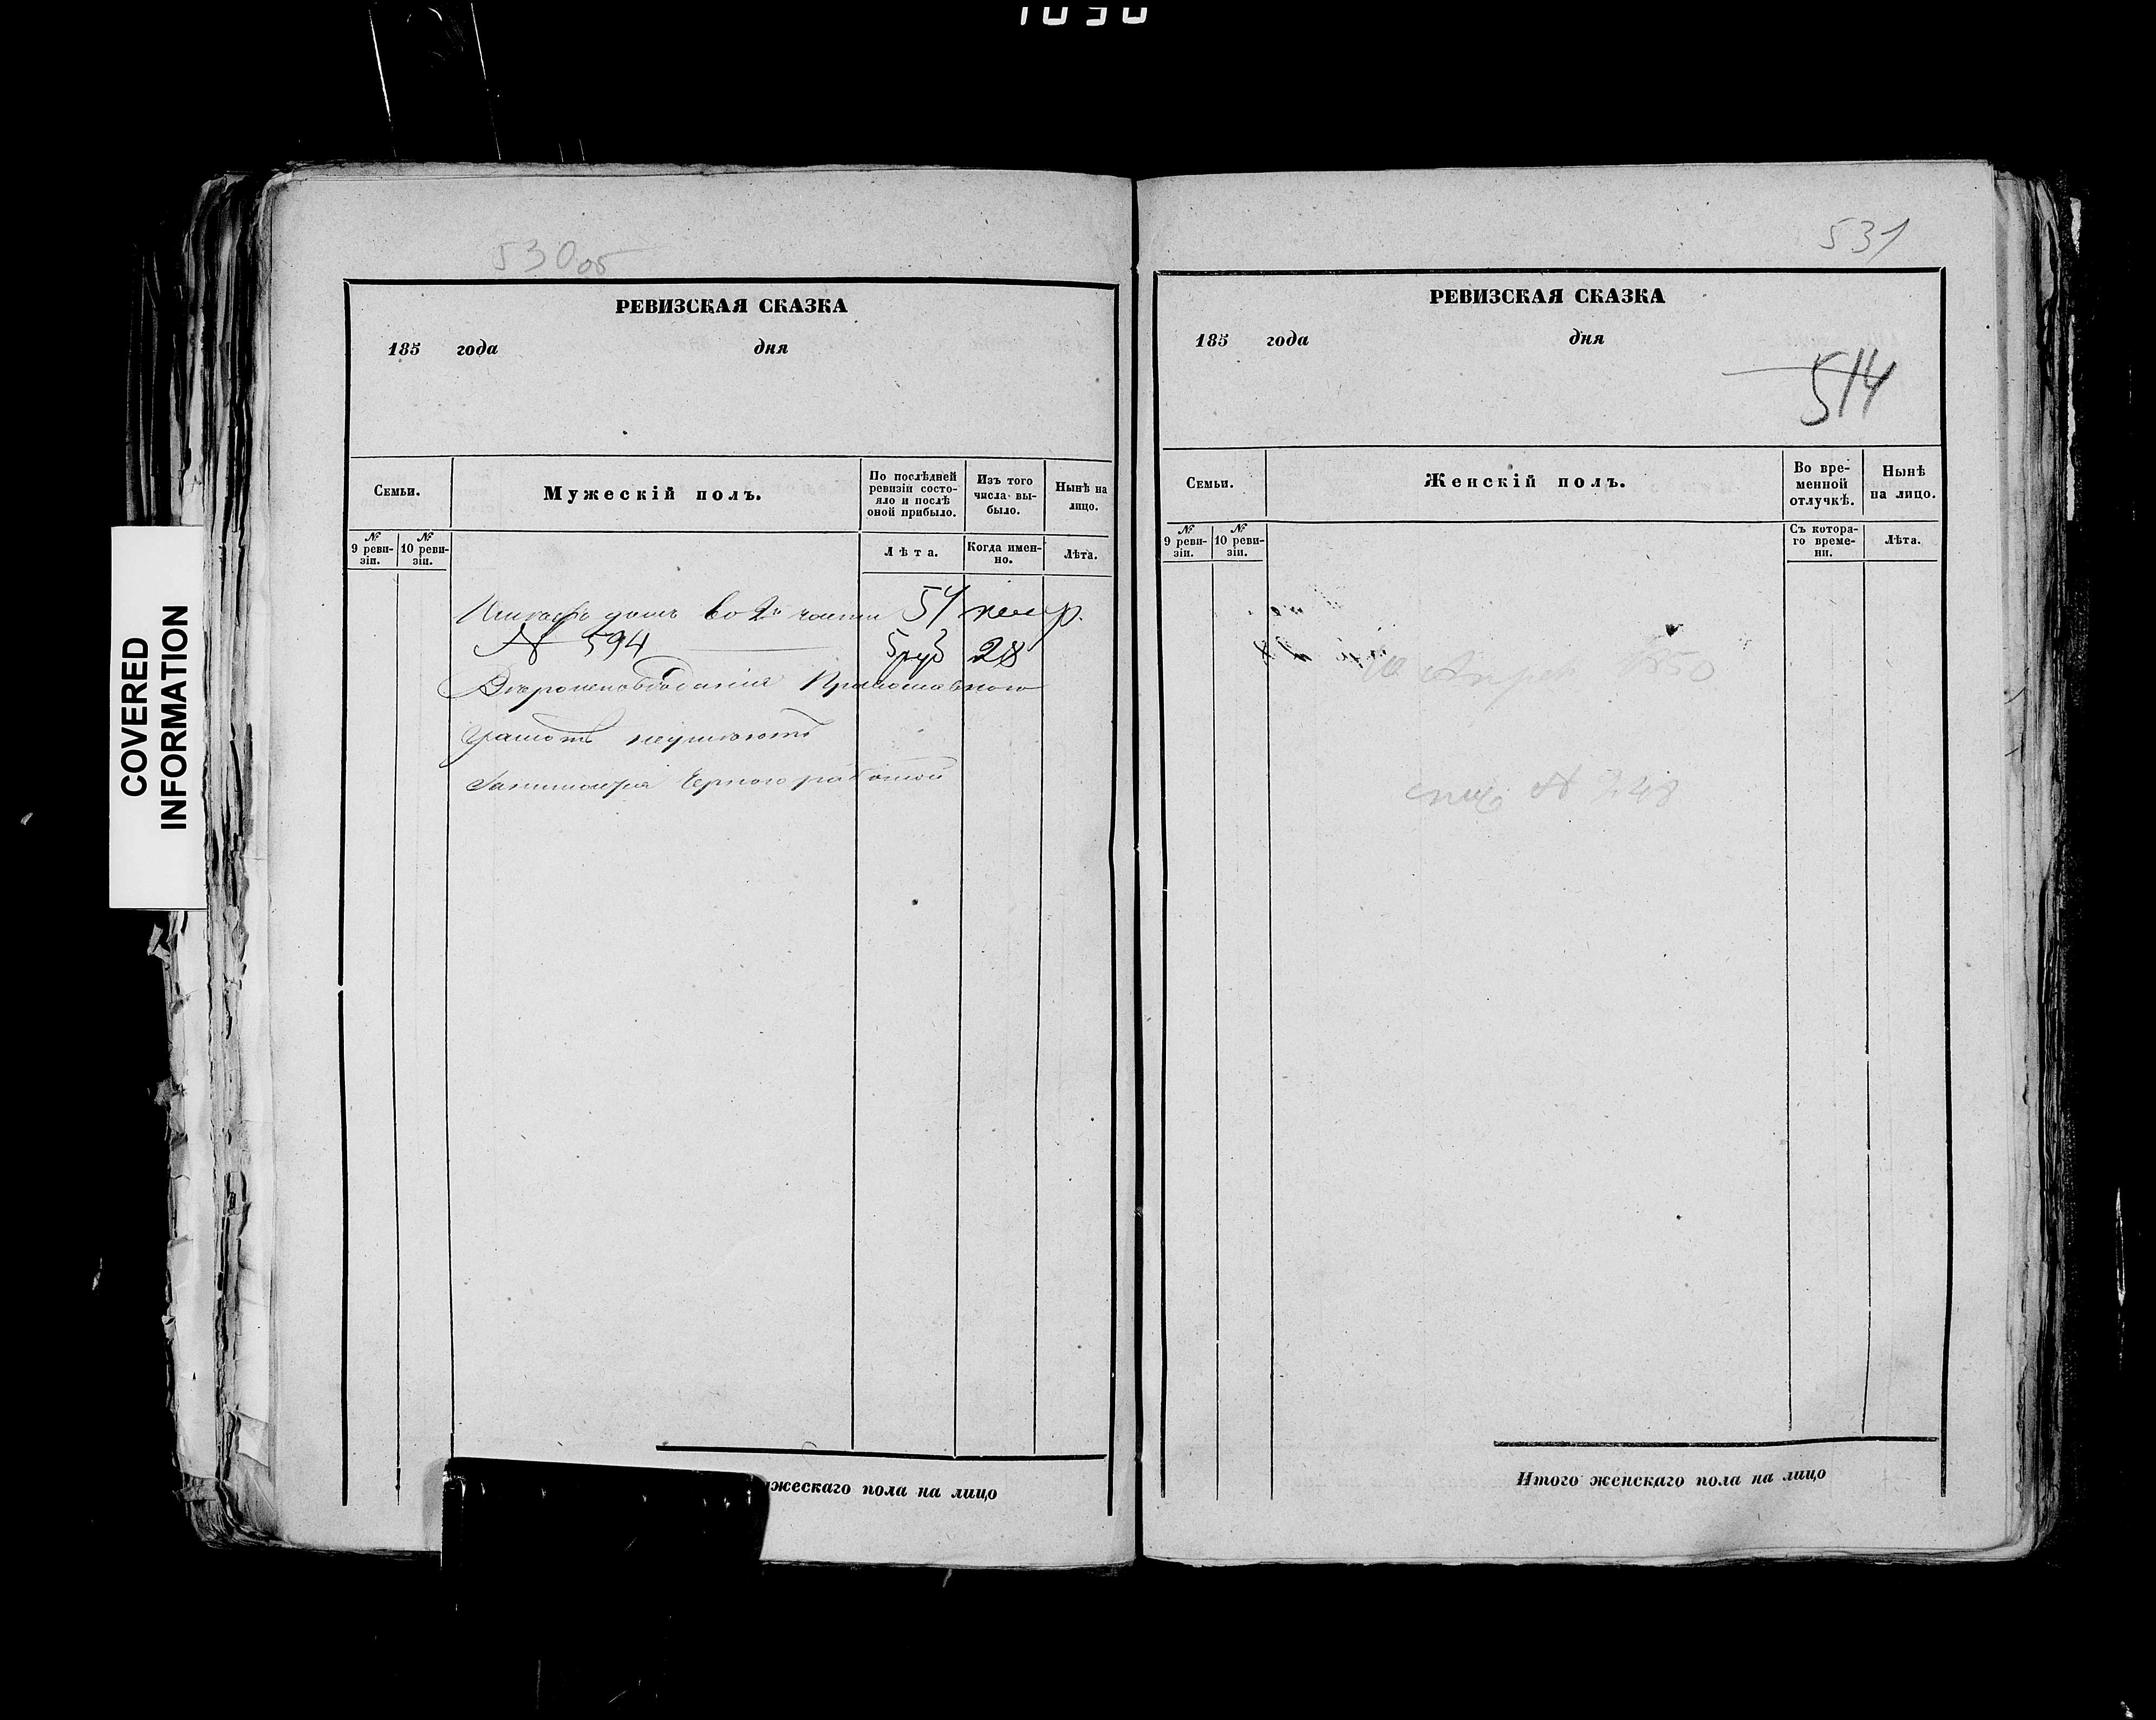 1090
COVERED
INFORMATION
530 об
РЕВИЗСКАЯ СКАЗКА
185 года дня
Семьи.
Мужескій полъ.
По послѣдней ревизіи состояло и послѣ оной прибыло.
Изъ того числа выбыло.
Нынѣ на лицо.
№ 9 ревизіи.
№ 10 ревизіи.
Лѣта.
Когда именно.
Лѣта.
домъ во 2й части 51
№ 594 5 руб 28
Вѣроисповѣданія Православного
Грамотѣ неумѣютъ
Занимается Черного работой
мужескаго пола на лицо
531
РЕВИЗСКАЯ СКАЗКА
185 года дня
514
Семьи.
Женскій полъ.
Во временной отлучкѣ.
Нынѣ на лицо.
№ 9 ревизіи.
№ 10 ревизіи.
Съ котораго времени.
Лѣта.
№ 248
Итого женскаго пола на лицо